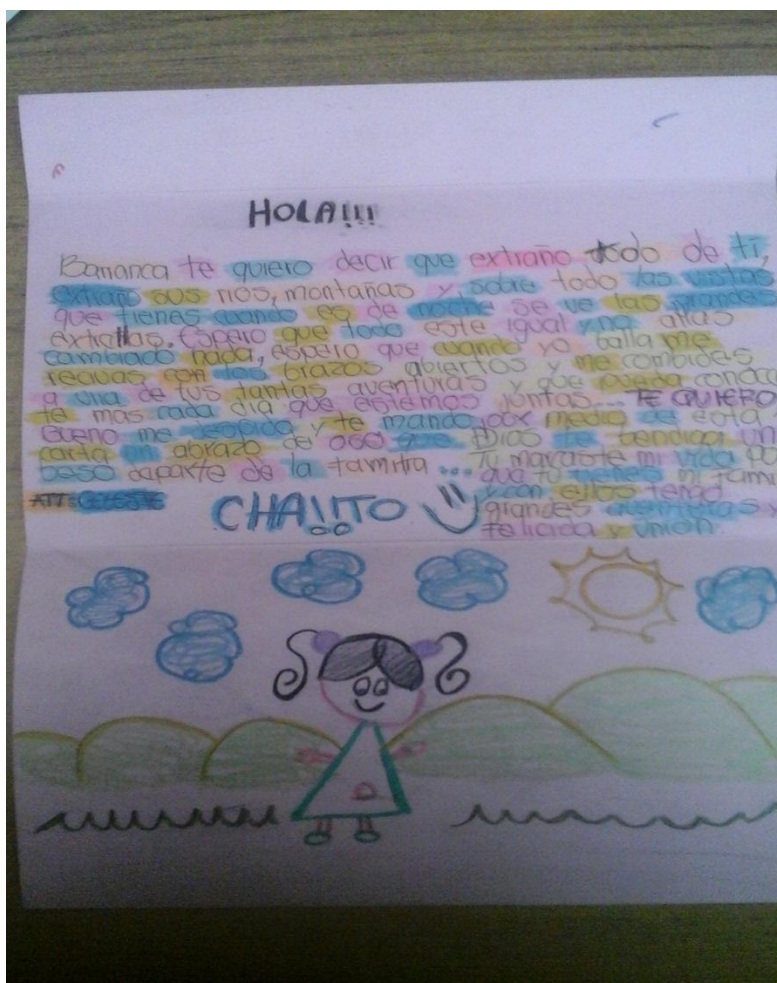 HOLA!!!
te quiero decir que extraño todo de ti,
extraño sus rios, montañas y sobre todo las vistas
que tienes cuando es de noche se ve las grandes
extrallas. Espero que todo este igual y no allas
cambiado nada, espero que cuando yo balla me
recivas con los brazos abiertos y me combides
a una de tus tantas aventuras y que pueda conoce
te mas cada dia que estemos juntas... TE QUIERO
Bueno me despido y te mando por medio de esta
carta un abrazo de oso que Dios te bendiga un
beso departe de la famitra ...
ATT: CELESTE
CHA!!TO
Tu marcaste mi vida po
que tu tienes mi fami
y con ellos tengo
grandes aventuras y
felicida y union.